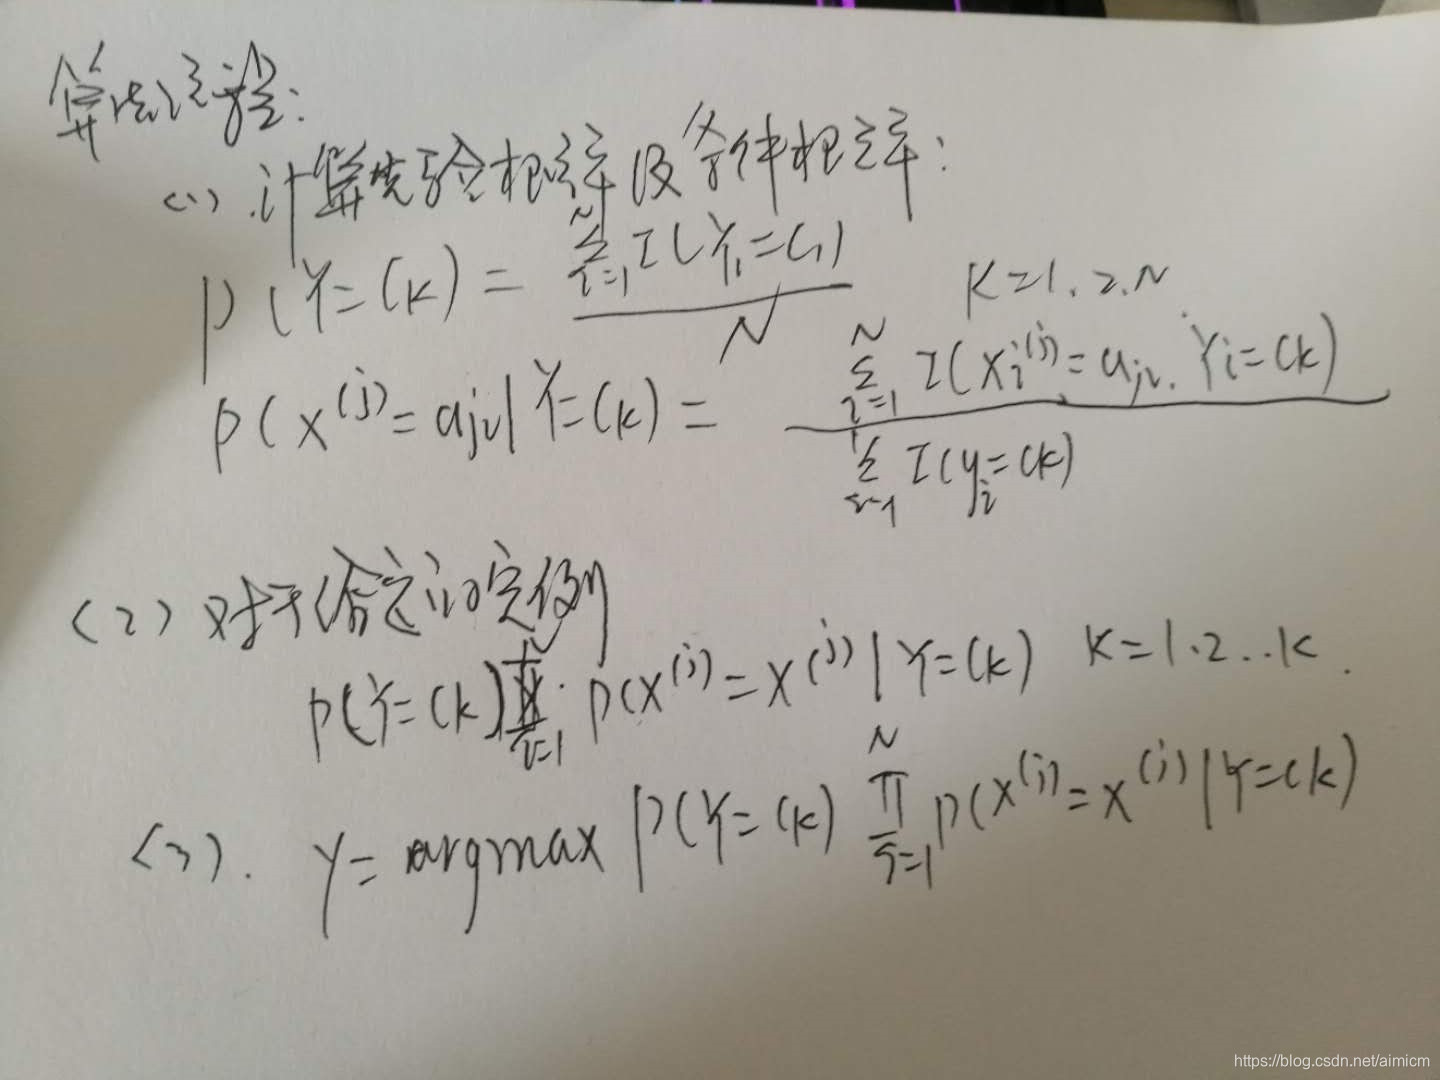 算法流程:
(1).计算先验概率及条件概率:
P(Y=Ck) = \frac{\sum_{i=1}^{N} I(Y_i=C_1)}{N} K=1.2.N
P(X^{(j)}=a_{jl}|Y=Ck) = \frac{\sum_{i=1}^{N} I(X_i^{(j)}=a_{jl}.Y_i=Ck)}{\sum_{i=1} I(y_i=Ck)}
(2) 对于给定的实例
P(Y=Ck) ∏_{i=1} P(X^{(j)}=X^{(j)}|Y=Ck) K=1.2..K.
(3). Y= argmax P(Y=Ck) ∏_{j=1}^{N} P(X^{(j)}=X^{(j)}|Y=Ck)
https://blog.csdn.net/aimicm